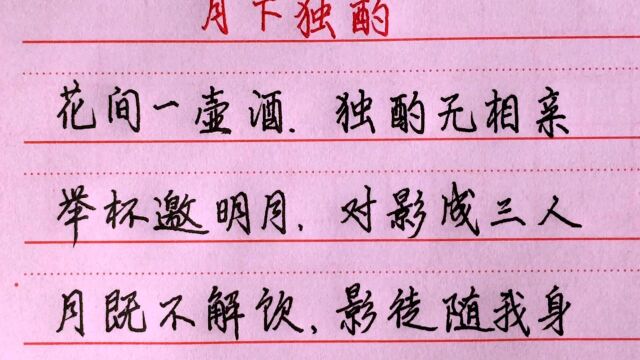 月下独酌
花间一壶酒.独酌无相亲
举杯邀明月,对影成三人
月既不解饮,影徒随我身